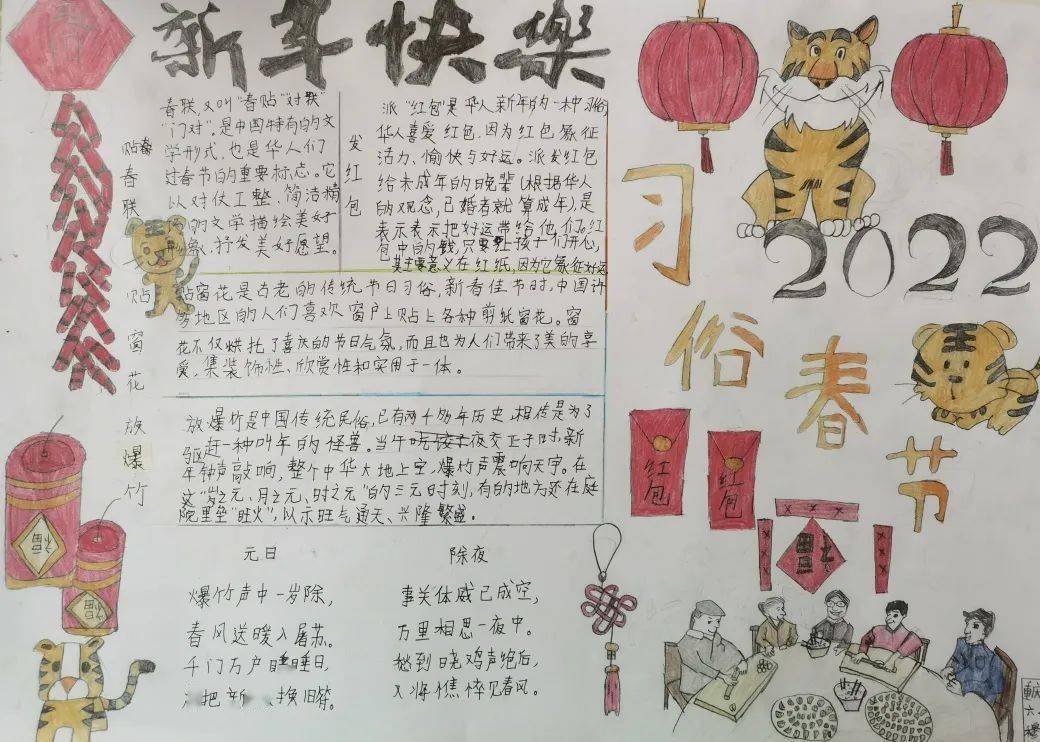 新年快樂
春
贴春联
春联,又叫"春贴""对联"
"门对",是中国特有的文
学形式,也是华人们
过春节的重要标志。它
以对仗工整、简洁精
的文学描绘美好
形象,抒发美好愿望。
发红包
派"红包"是华人新年的一种习俗,
华人喜爱红包,因为红包象征
活力、愉快与好运。派发红包
给未成年的晚辈(根据华人
的观念,已婚者就算成年)是
表示表示把好运带给他们。红
包中的钱,只要让孩子们开心,
其主要意义在红纸,因为它象征好运
贴窗花
贴窗花是古老的传统节日习俗,新春佳节时,中国许
多地区的人们喜欢窗户上贴上各种剪纸窗花。窗
花不仅烘托了喜庆的节日气氛,而且也为人们带来了美的享
受,集装饰性、欣赏性和实用于一体。
放爆竹
放爆竹是中国传统民俗,已有两千多年历史,相传是为了
驱赶一种叫年的怪兽。当午夜交正子时,新
年钟声敲响,整个中华大地上空,爆竹声震响天宇。在
这"岁之元、月之元、时之元"的三元时刻,有的地方还在庭
院里垒"旺火",以示旺气通天、兴隆繁盛。
元日
爆竹声中一岁除,
春风送暖入屠苏。
千门万户瞳瞳日,
把新
换旧符。
除夜
事关休戚已成空,
万里相思一夜中。
愁到晓鸡声绝后,
又将憔悴见春风。
2022
习俗
春节
红包
红包
福
福
福
六